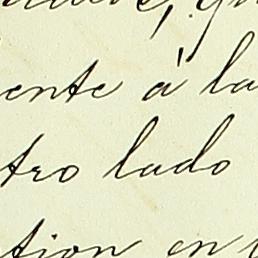 ente á la
tro lado
tion en